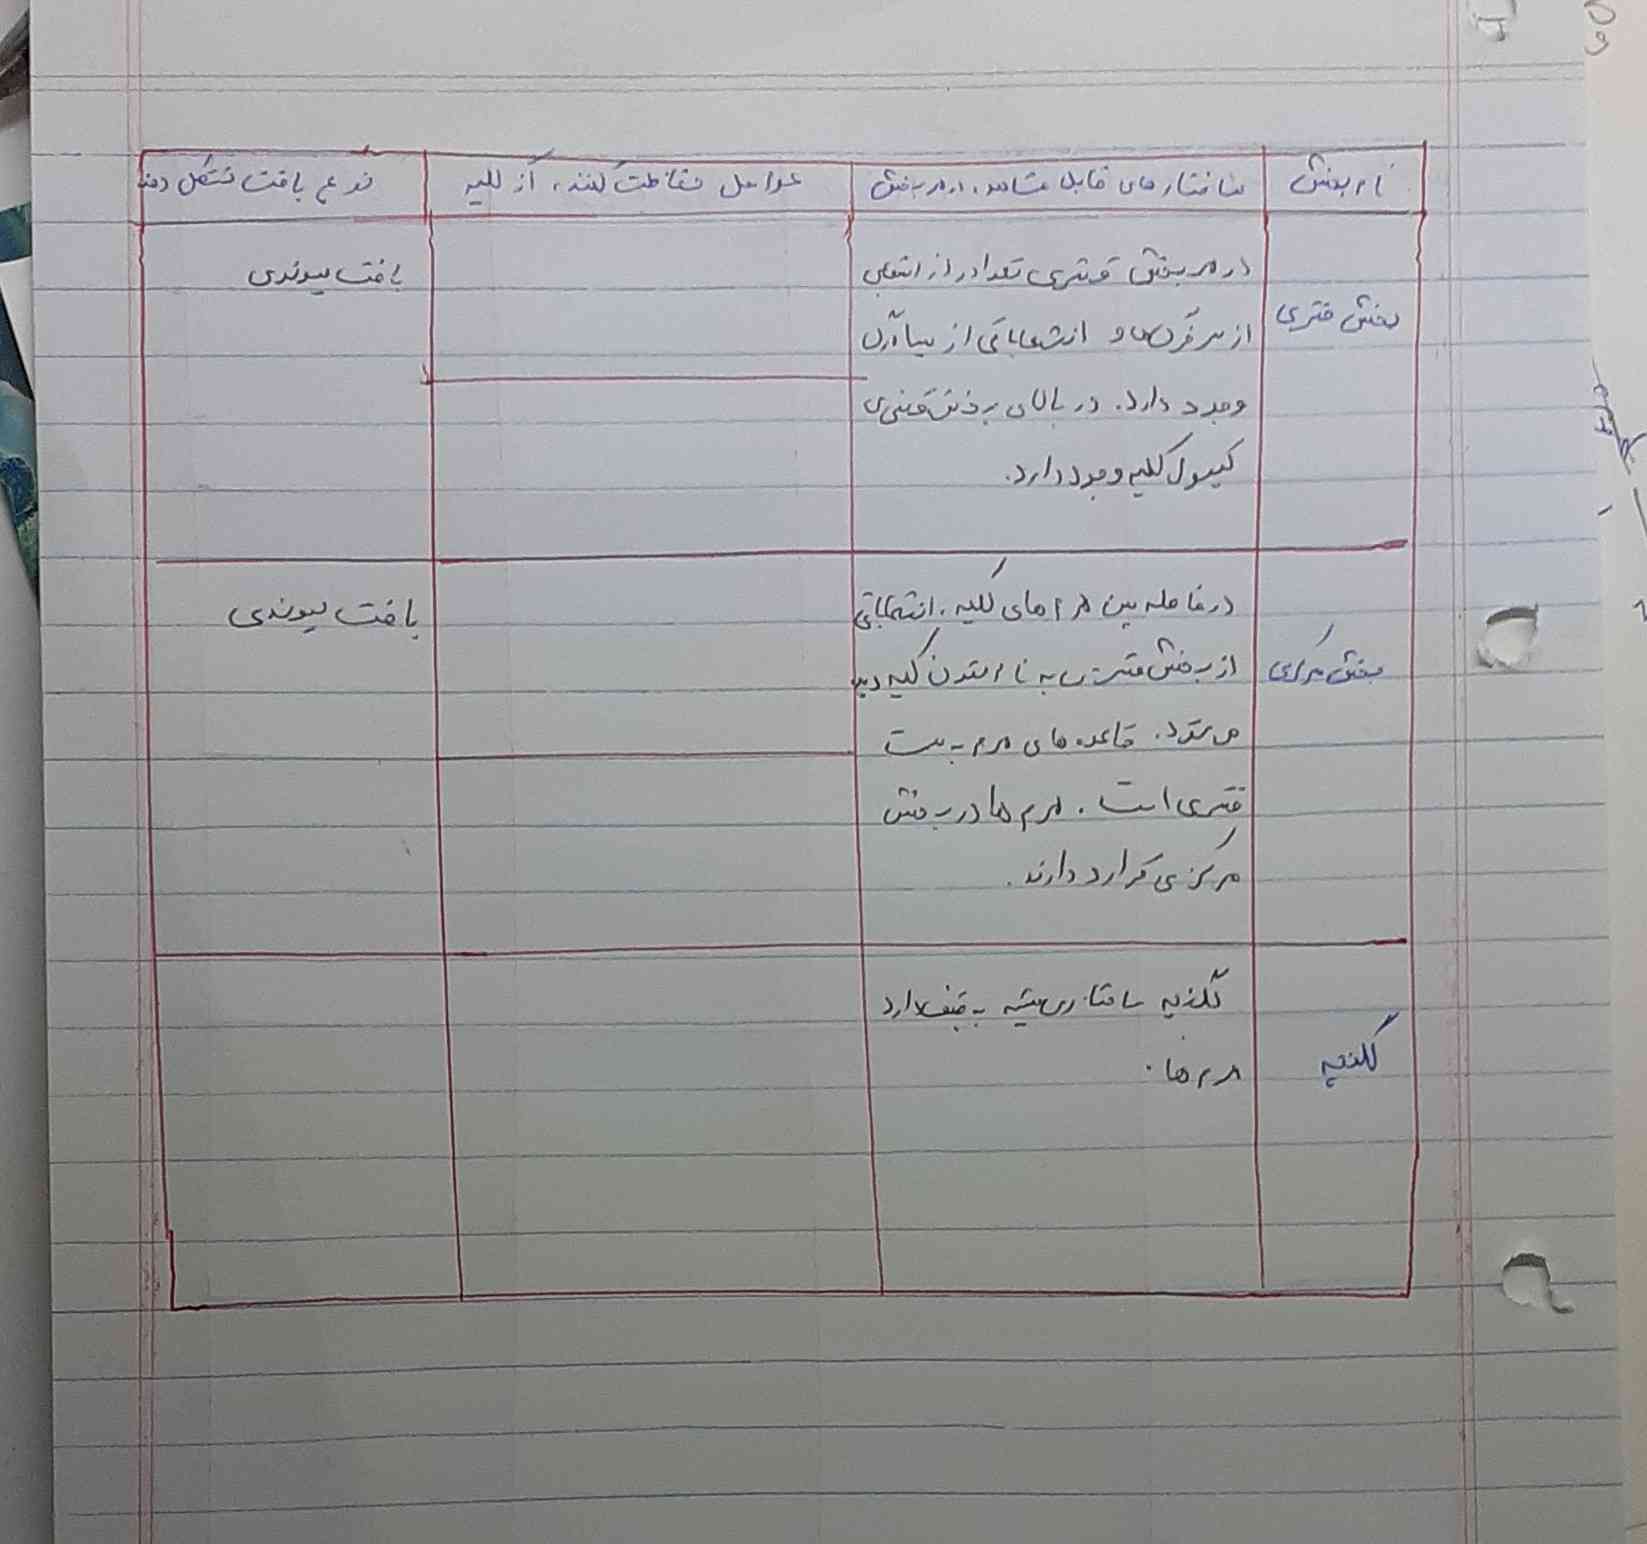 نام بخش
ساختارهای قابل مشاهده در هر بخش
عوامل حفاظت کننده از کلیه
نوع بافت تشکل دهنده
بخش قشری
در هر بخش قشری تعداد از انتهای
از سرخرگ‌ها و انشعاباتی از سیاهرگ
وجود دارد. در بالای بخش قشری
کپسول کلیه وجود دارد.
بافت پیوندی
بخش مرکزی
در فاصله بین هرم های کلیه، انشعاباتی
از بخش قشری به نام ستون کلیه دیده
می‌شود. قاعده های هرم به سمت
قشری است. هرم ها در بخش
مرکزی قرارد دارند.
بافت پیوندی
لگنچه
لگنچه ساختاری شبیه به قیف دارد
هرم ها.